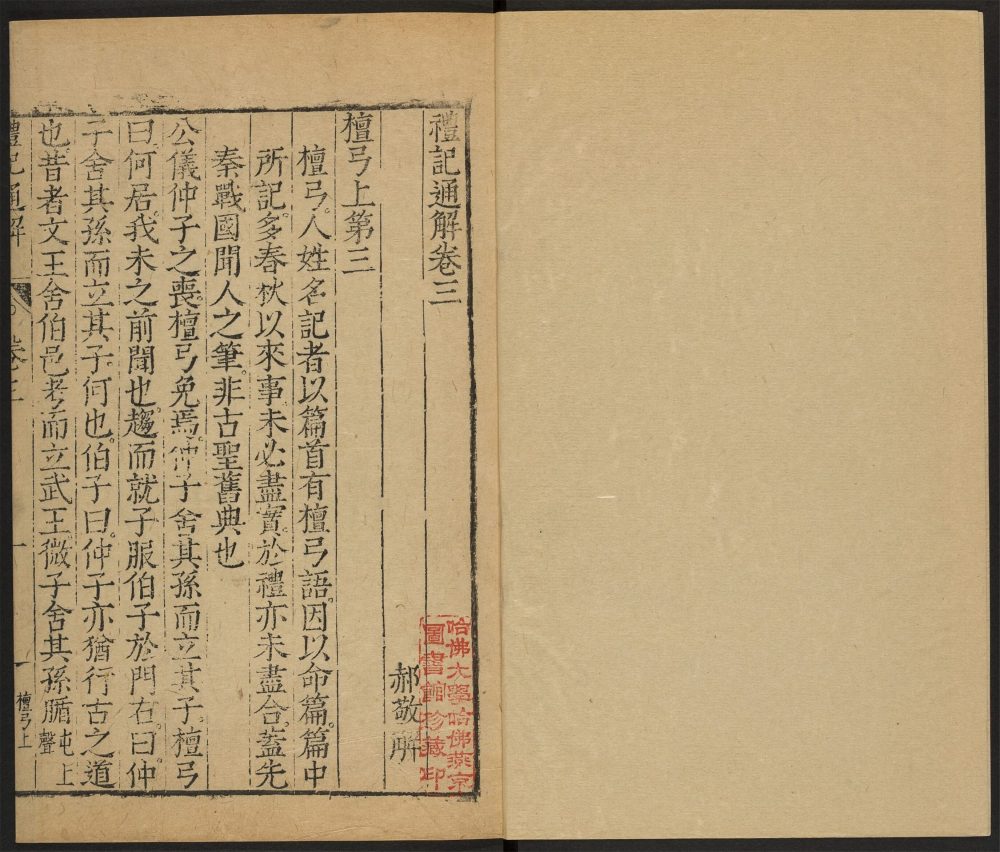 禮記通解卷三
郝敬解
檀弓上第三
檀弓。人姓名。記者以篇首有檀弓語。因以命篇。篇中
所記。多春秋以來事。未必盡實。於禮亦未盡合。蓋先
秦戰國聞人之筆。非古聖舊典也
公儀仲子之喪。檀弓免焉。仲子舍其孫而立其子。檀弓
曰。何居。我未之前聞也。趨而就子服伯子於門右。曰。仲
子舍其孫而立其子。何也。伯子曰。仲子亦猶行古之道
也。昔者文王舍伯邑考而立武王。微子舍其孫腯屯上聲
禮記通解
卷三
一
檀弓上
哈佛大學哈佛燕京
圖書館珍藏印